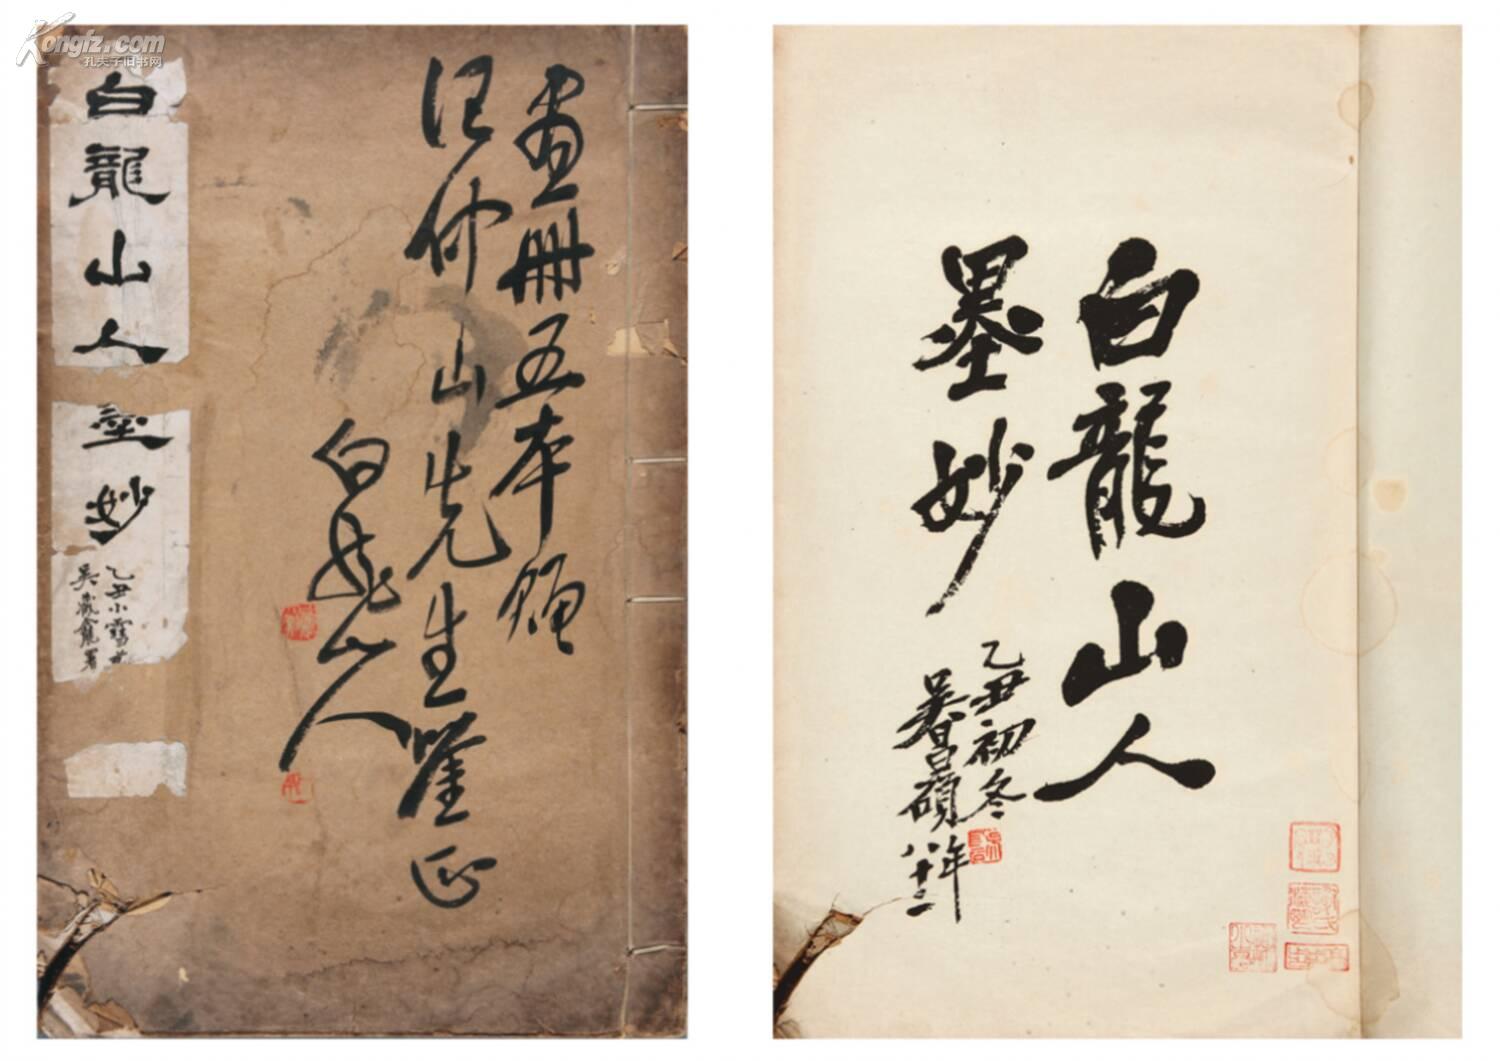 Kongfz.com
孔夫子旧书网
画册五本贻
汪仲山先生鉴正
白龙山人
白龍山人墨妙
乙丑小雪
吳臧龕署
白龍山人
墨妙
乙丑初冬
吳昌碩年八十二